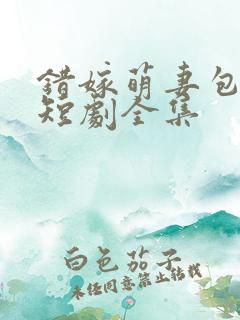 錯嫁萌妻包
短劇全集
白色茄子
未经同意禁止转载